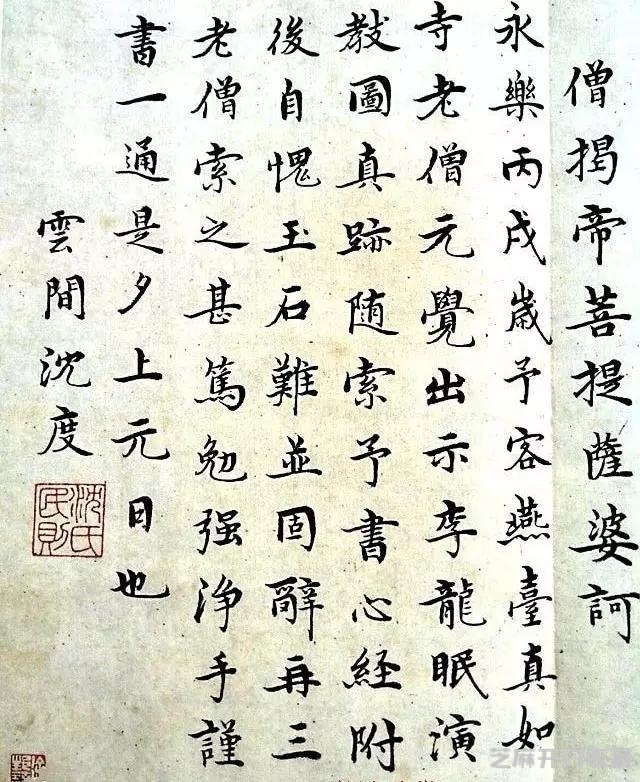 僧揭帝菩提薩婆訶
永樂丙戌歲予客燕臺真如
寺老僧元覺出示李龍眠演
教圖真跡随索予書心経附
後自愧玉石難並固辭再三
老僧索之甚篤勉强淨手謹
書一通是夕上元日也
雲間沈度
沈氏民則